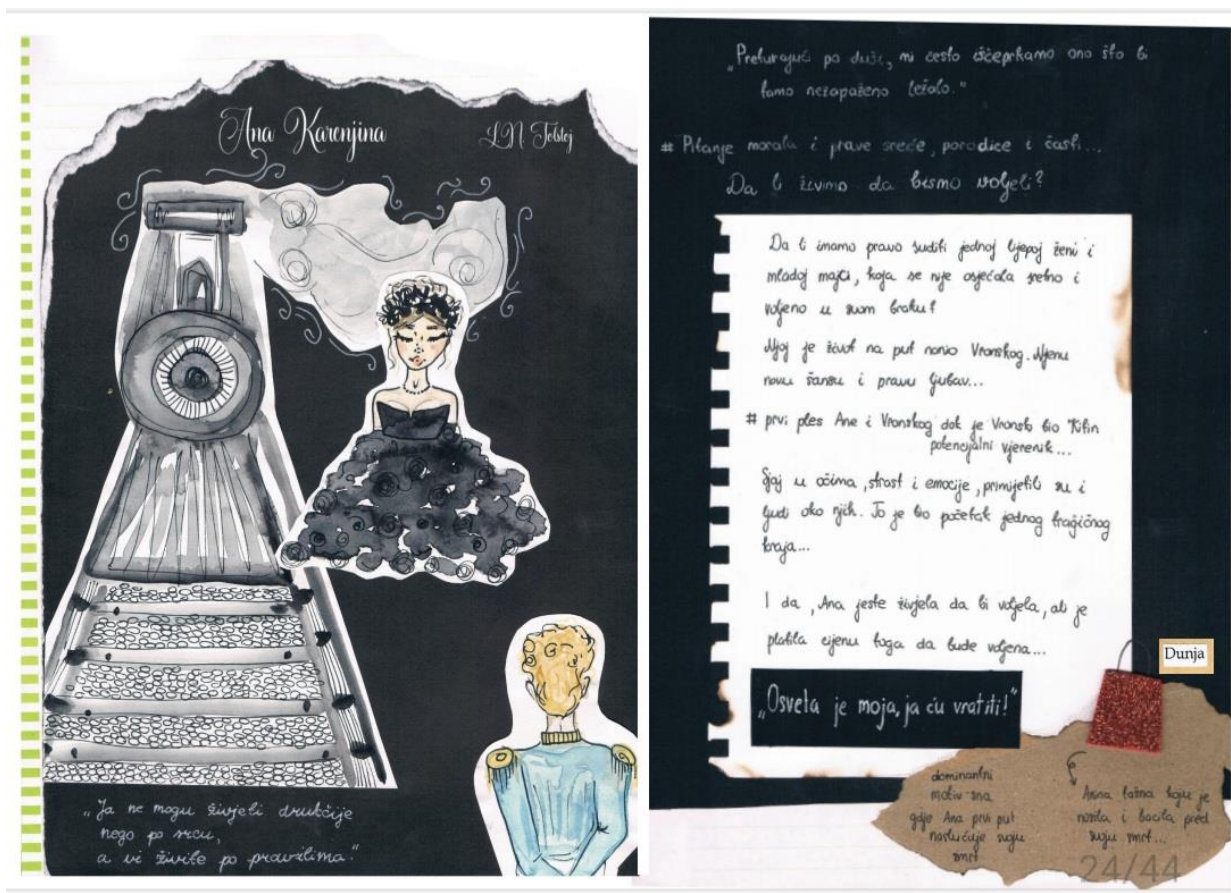 Ana Karenjina
LN Tolstoj
„Ja ne mogu živjeti drukčije
nego po srcu,
a vi živite po pravilima.“
„Preturajući po duši, mi često iščeprkamo ono što bi
tamo nezapaženo ležalo.“
# Pitanje morala i prave sreće, porodice i časti...
Da li živimo da bismo voljeli?
Da li imamo pravo suditi jednoj lijepoj ženi i
mladoj majci, koja se nije osjećala sretno i
voljeno u svom braku?
Njoj je život na put nanio Vronskog. Njenu
novu šansu i pravu ljubav...
# prvi ples Ane i Vronskog dok je Vronski bio Kitin
potencijalni vjerenik...
Sjaj u očima, strast i emocije, primijetili su i
ljudi oko njih. To je bio početak jednog tragičnog
kraja...
I da, Ana jeste živjela da bi voljela, ali je
platila cijenu toga da bude voljena...
„Osveta je moja, ja ću vratiti!“
Dunja
dominantni
motiv sna
gdje Ana prvi put
naslućuje svoju
smrt
Anina tašna koju je
nosila i bacila pred
svoju smrt...
24/44